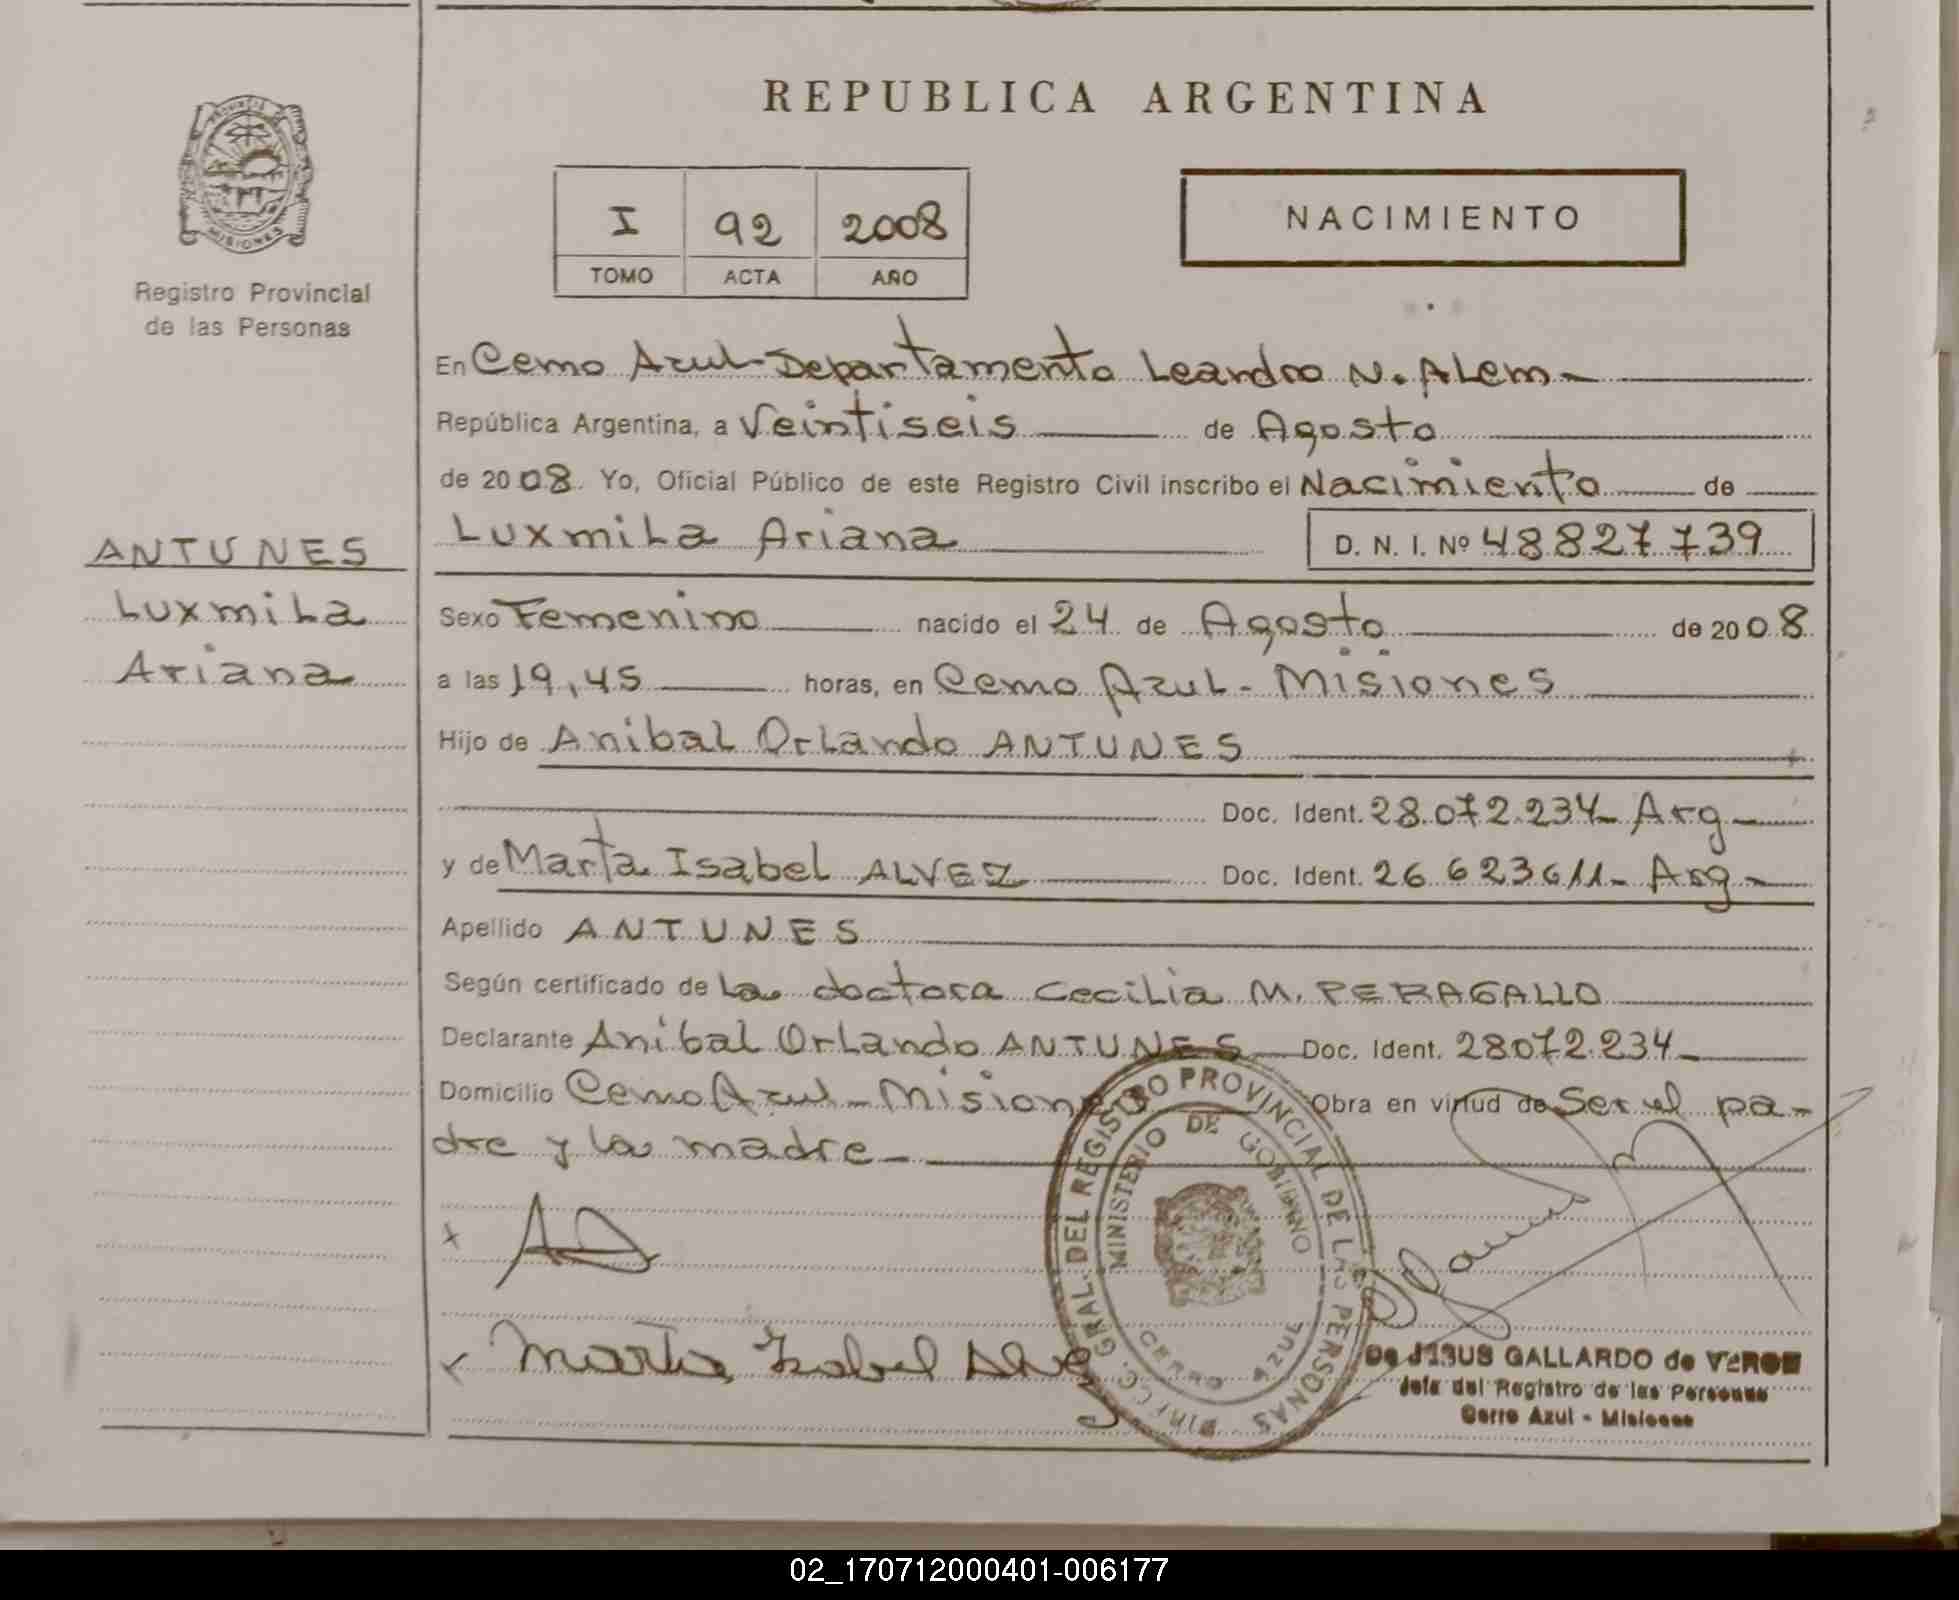 REPUBLICA ARGENTINA
MISIONES
Registro Provincial
de las Personas
I 92 2008
TOMO ACTA AÑO
NACIMIENTO
En Cerro Azul-Departamento Leandro N. Alem-
República Argentina, a Veintiseis de Agosto
de 2008. Yo, Oficial Público de este Registro Civil inscribo el Nacimiento de
Luxmila Ariana D. N. I. Nº 48827739
ANTUNES
Luxmila
Ariana
Sexo Femenino nacido el 24 de Agosto de 2008
a las 19,45 horas, en Cerro Azul - Misiones
Hijo de Anibal Orlando ANTUNES
Doc. Ident. 28.072.234- Arg-
y de Marta Isabel ALVEZ Doc. Ident. 26 623611- Arg-
Apellido ANTUNES
Según certificado de la doctora Cecilia M. PERAGALLO
Declarante Anibal Orlando ANTUNES Doc. Ident. 28072.234-
Domicilio Cerro Azul - Misiones Obra en virtud de Ser el pa-
dre y la madre-
Marta Isabel Alvez
DIRECC. GRAL. DEL REGISTRO PROVINCIAL DE LAS PERSONAS
MINISTERIO DE GOBIERNO
CERRO AZUL
De JESUS GALLARDO de VERON
Jefa del Registro de las Personas
Cerro Azul - Misiones
02_170712000401-006177